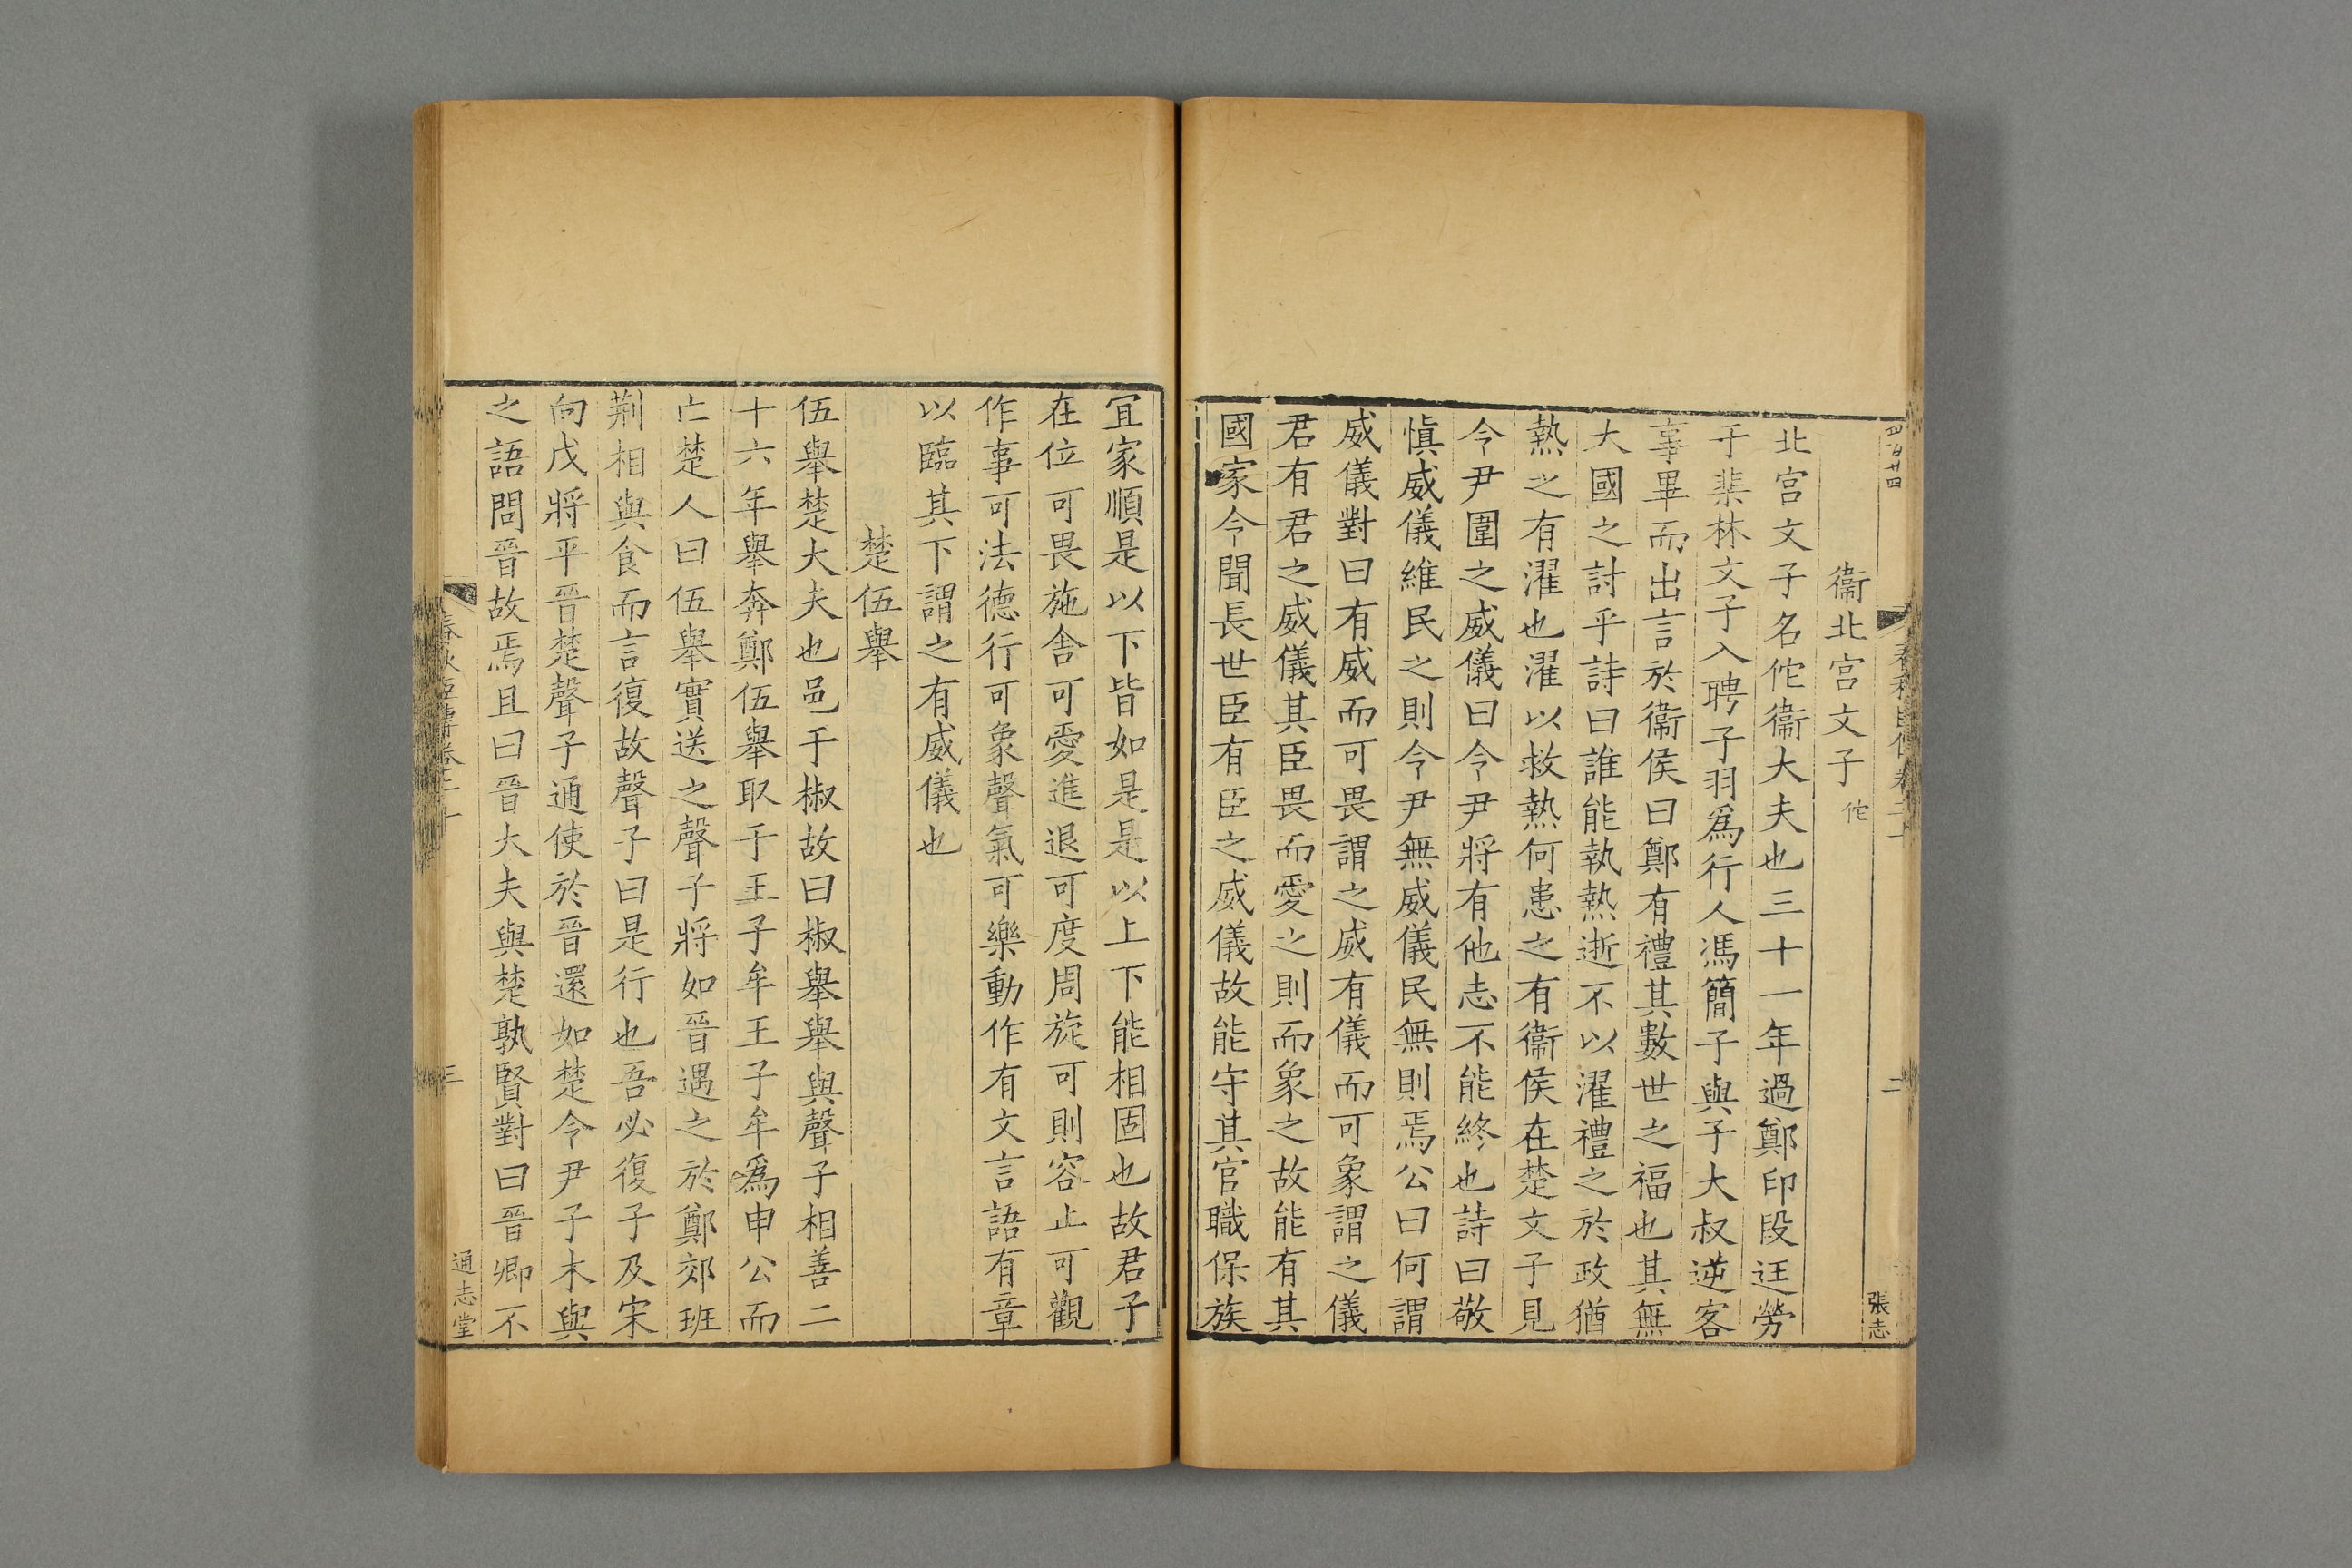 四百廿四
二
張志
衞北宮文子佗
北宮文子名佗衞大夫也三十一年過鄭印段迋勞
于棐林文子入聘子羽爲行人馮簡子與子大叔逆客
事畢而出言於衞侯曰鄭有禮其數世之福也其無
大國之討乎詩曰誰能執熱逝不以濯禮之於政猶
熱之有濯也濯以救熱何患之有衞侯在楚文子見
令尹圍之威儀曰令尹將有他志不能終也詩曰敬
愼威儀維民之則令尹無威儀民無則焉公曰何謂
威儀對曰有威而可畏謂之威有儀而可象謂之儀
君有君之威儀其臣畏而愛之則而象之故能有其
國家令聞長世臣有臣之威儀故能守其官職保族
宜家順是以下皆如是是以上下能相固也故君子
在位可畏施舍可愛進退可度周旋可則容止可觀
作事可法德行可象聲氣可樂動作有文言語有章
以臨其下謂之有威儀也
楚伍舉
伍舉楚大夫也邑于椒故曰椒舉舉與聲子相善二
十六年舉奔鄭伍舉取于王子牟王子牟爲申公而
亡楚人曰伍舉實送之聲子將如晉遇之於鄭郊班
荆相與食而言復故聲子曰是行也吾必復子及宋
向戌將平晉楚聲子通使於晉還如楚令尹子木與
之語問晉故焉且曰晉大夫與楚孰賢對曰晉卿不
三
通志堂